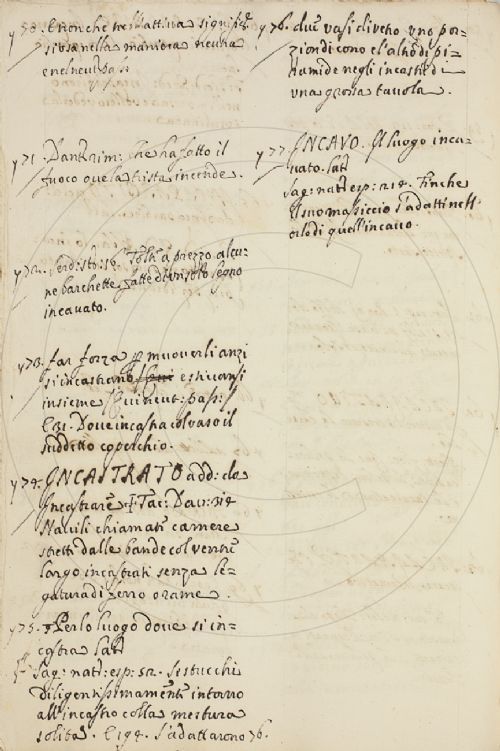 y70. tronche
si usa nella maniera neutra
e nel neut: pas:
y71. Dant: rim: che ha fatto il
fuoco ove la trista incende.
y72. Serd: sto: 16. Tolti a prezzo alcu=
ne barchette fatte d'un solo legno
incavato.
y73. far forza p muoverli anzi
si incastrano e stivansi
insieme
E 31. Dove incastra col vaso il
suddetto coperchio.
y74. INCASTRATO add: da
Incastrare Tac: Dav:
Navili chiamati camere
stretti dalle bande col ventre
largo incastrati senza le=
gatura di ferro o rame.
y75. Per lo luogo dove si in=
castra
Sag: nat: esp: 52. Si stucchi
diligentissimamente intorno
all'incastro colla mestura
solita. E 194. S'adattarono 76.
y76. due vasi di vetro uno por=
zion di cono e l'altro di pi=
ramide negli incastri di
una grossa tavola.
y77. INCAVO. Il luogo inca=
vato.
Sag: nat: esp: 214. Finche
il suo massiccio s'adatti nell
orlo di quell'incavo.